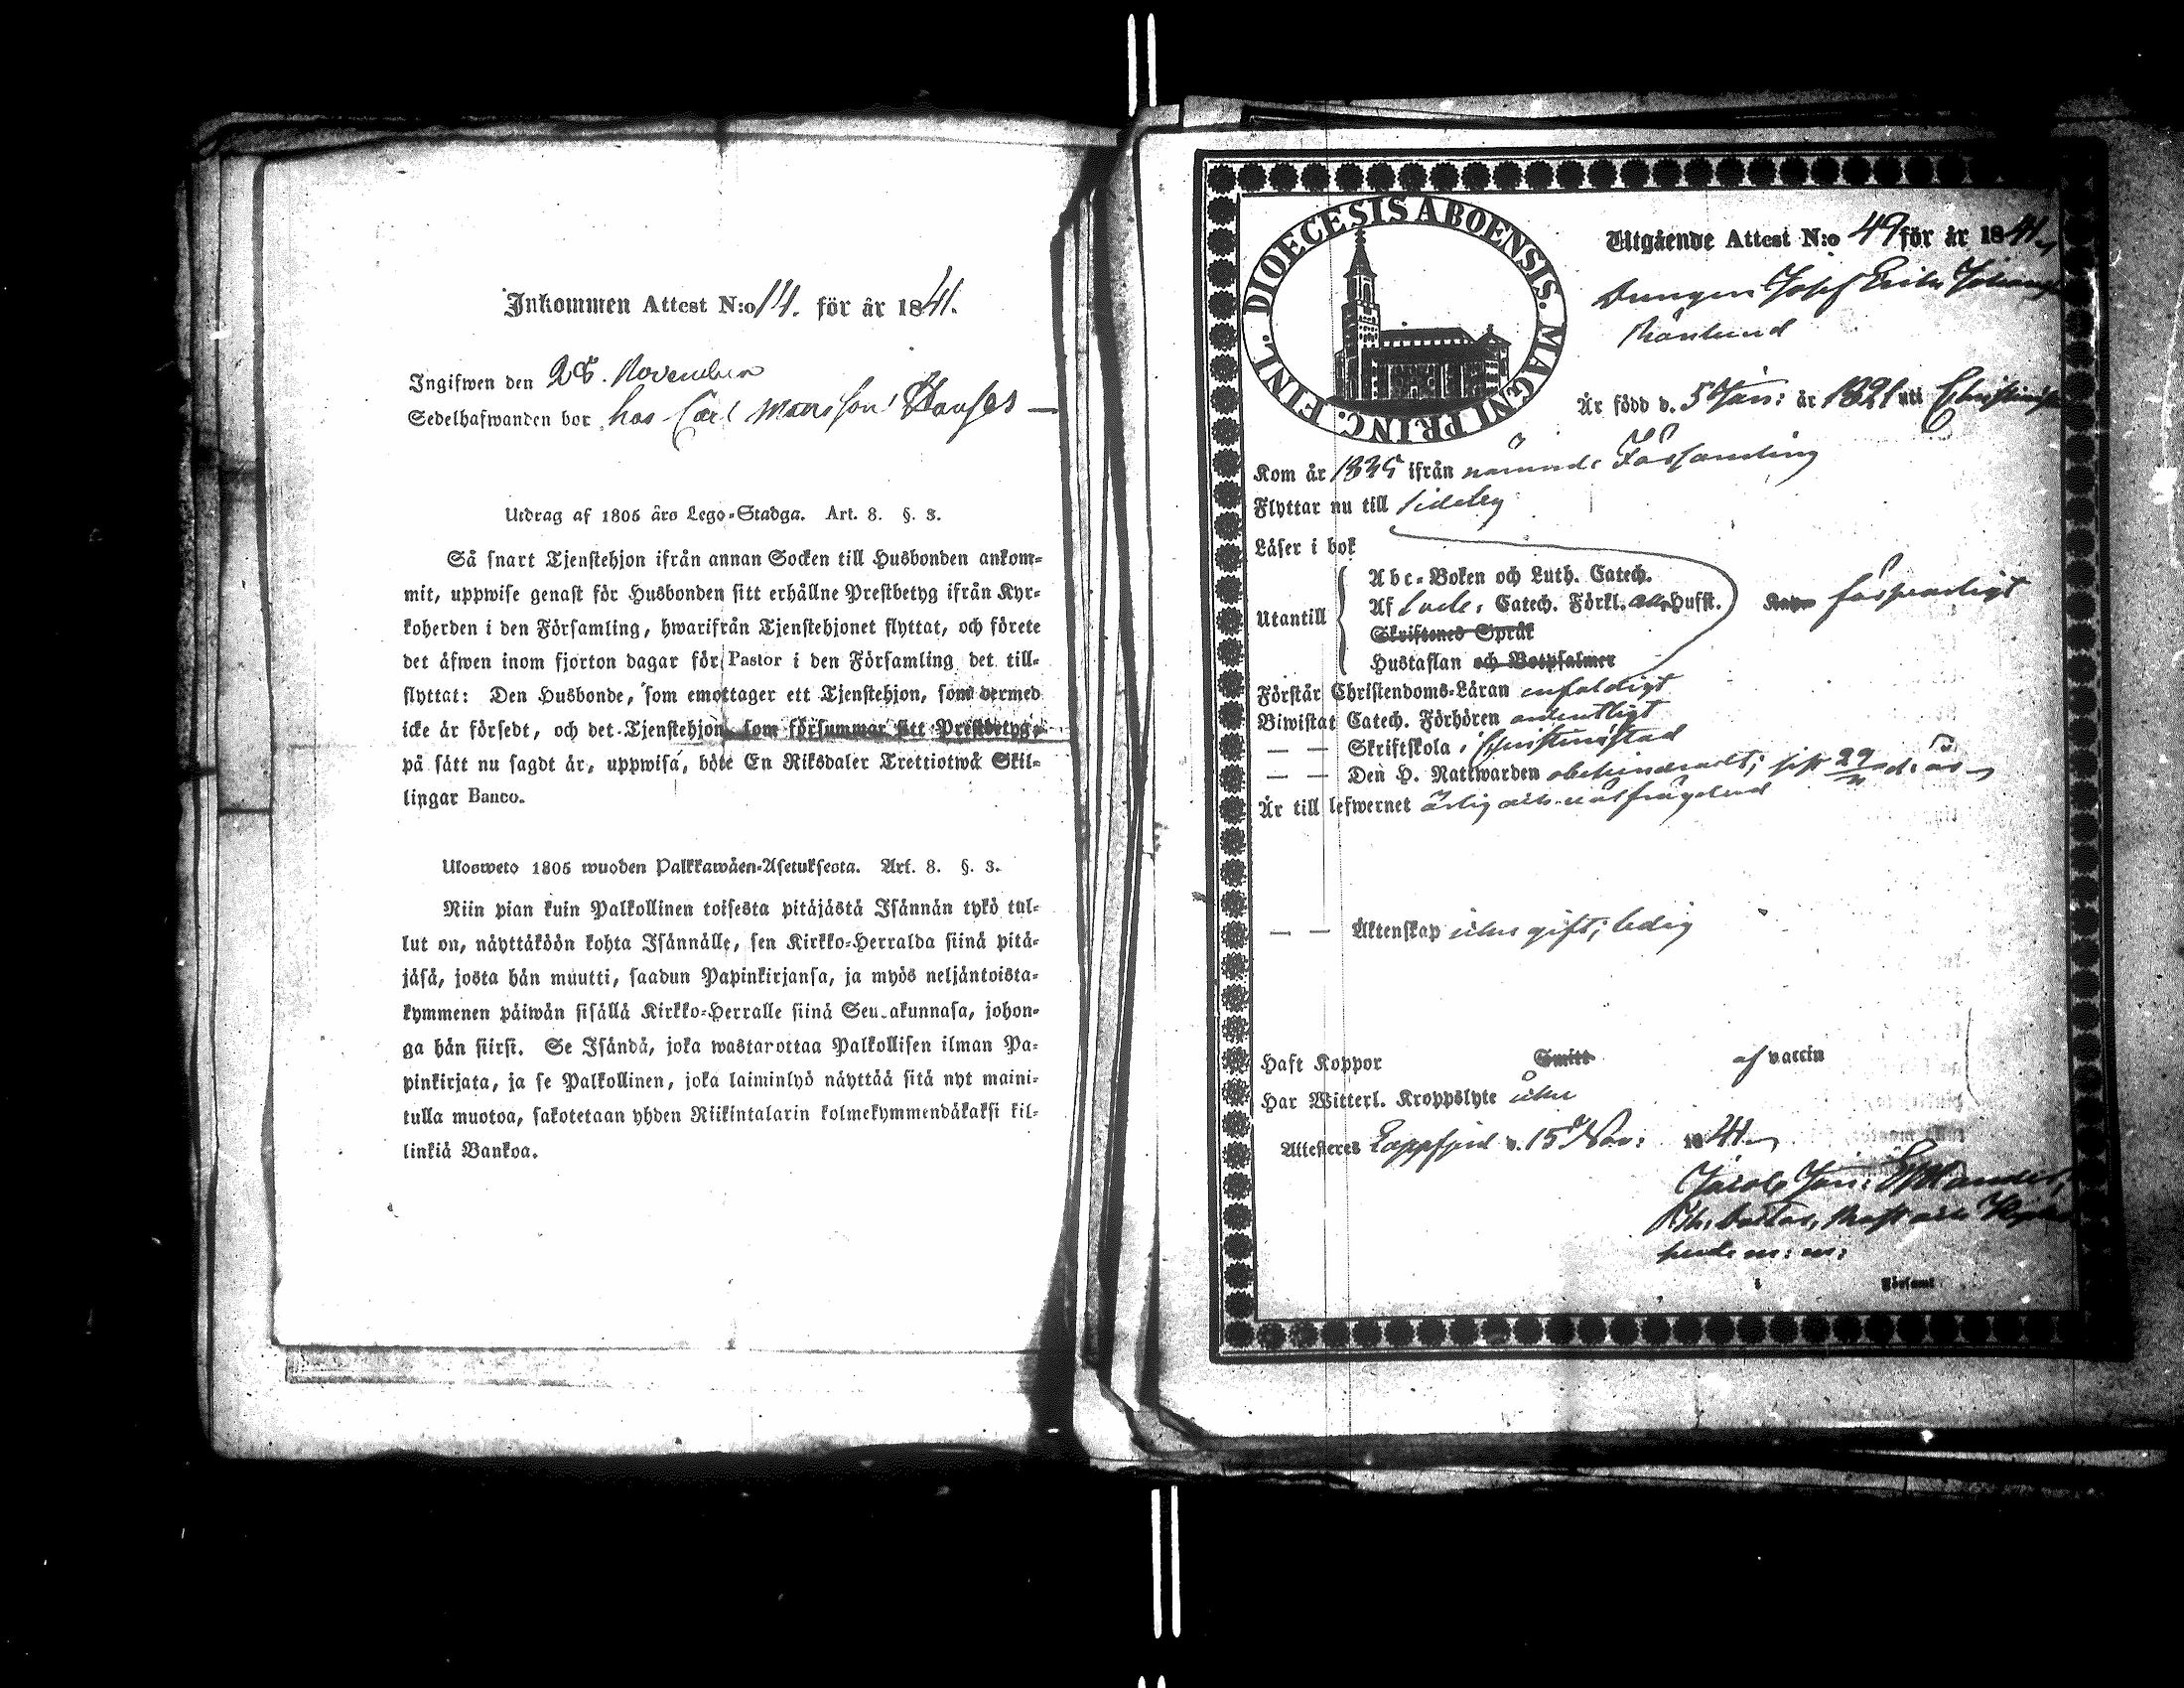 Inkommen Attest N:o 14. för år 1841.
Ingifwen den 28. November
Sedelhafwanden bor hos Carl Mansson
Utdrag af 1805 års Lego-Stadga. Art. 8. §. 3.
Så snart Tjenstehjon ifrån annan Socken till Husbonden ankom-
mit, uppwise genast för Husbonden sitt erhållne Prestbetyg ifrån Kyr-
koherden i den Församling, hwarifrån Tjenstehjonet flyttat, och förete
det äfwen inom fjorton dagar för Pastor i den Församling det till-
flyttat: Den Husbonde, som emottager ett Tjenstehjon, som dermed
icke är försedt, och det Tjenstehjon, som försummar sitt Prestbetyg,
på sätt nu sagdt är, uppwisa, böte En Riksdaler Trettiotwå Skil-
lingar Banco.
Ulosweto 1805 wuoden Palkkawäen-Asetuksesta. Art. 8. §. 3.
Niin pian kuin Palkollinen toisesta pitäjästä Isännän tykö tul-
lut on, näyttäköön kohta Isännälle, sen Kirkko-Herralda siinä pitä-
jäsä, josta hän muutti, saadun Papinkirjansa, ja myös neljäntoista-
kymmenen päiwän sisällä Kirkko-Herralle siinä Seurakunnasa, johon-
ga hän siirsi. Se Isändä, joka wastarottaa Palkollisen ilman Pa-
pinkirjata, ja se Palkollinen, joka laiminlyö näyttää sitä nyt maini-
tulla muotoa, sakotetaan yhden Riikintalarin kolmekymmendäkaksi kil-
linkiä Bankoa.
DIOECESIS ABOENSIS. MAGNI PRINC. FINL.
Utgående Attest N:o 49 för år 1841
Drengen Josef Erik
Är född d. 5 Jan: år 1821 uti
Kom år 1835 ifrån nämnde Församling
Flyttar nu till Sideby
Läser i bok
Utantill
Abc-Boken och Luth. Catech.
Af Catech. Förkl. Husst. försvarligt
Skriftenes Språk
Hustaflan och Botpsalmer
Förstår Christendoms-Läran enfaldigt
Biwistat Catech. Förhören ordentligt
— — Skriftskola i Christinestad
— — Den H. Nattwarden obehindradt; sist 29 d. år
Är till lefwernet ärlig och wälfrägdad
— — Äktenskap icke gift; ledig
Haft Koppor Smitt af vaccin
Har Witterl. Kroppslyte icke
Attesteres Lappfjerd d. 15 Nov: 1841
Jacob Joh:
m: m:
i Församl